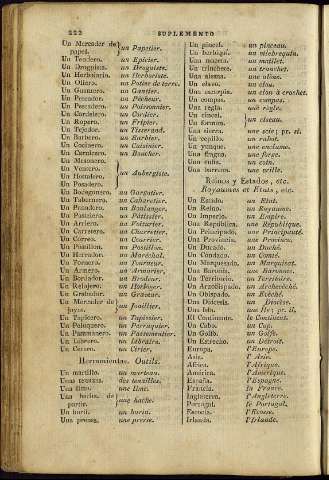 222 SUPLEMENTO
Un Mercader de papel. un Papetier.
Un Tendero. un Epicier.
Un Droguista. un Droguiste.
Un Herbolario. un Herboriste.
Un Ollero. un Potier de terre.
Un Guantero. un Gantier.
Un Pescador. un Pêcheur.
Un Pescador. un Poissonnier.
Un Cordelero. un Cordier.
Un Ropero. un Fripier.
Un Tejedor. un Tisserand.
Un Barbero. un Barbier.
Un Cocinero. un Cuisinier.
Un Carnicero. un Boucher.
Un Mesonero.
Un Ventero.
Un Hostalero. un Aubergiste.
Un Posadero.
Un Bodegonero. un Gargotier.
Un Tabernero. un Cabaretier.
Un Panadero. un Boulanger.
Un Pastelero. un Pâtissier.
Un Arriero. un Voiturier.
Un Carretero. un Charretier.
Un Correo. un Courrier.
Un Postillon. un Postillon.
Un Herrador. un Maréchal.
Un Tornero. un Tourneur.
Un Armero. un Armurier.
Un Bordador. un Brodeur.
Un Relojero. un Horloger.
Un Grabador. un Graveur.
Un Mercader de joyas. un Jouillier.
Un Tapicero. un Tapissier.
Un Peluquero. un Perruquier.
Un Pasamanero. un Passementier.
Un Librero. un Libraire.
Un Cerero. un Cirier.
Herramientas. Outils.
Un martillo. un marteau.
Unas tenazas. des tenailles.
Una lima. une lime.
Una hacha de partir. une hache.
Un buril. un burin.
Una prensa. une presse.
Un pincel. un pinceau.
Un berbiquí. un vilebrequin.
Un mazo. un maillet.
Un trinchete. un tranchet.
Una alesna. une alène.
Un clavo. un clou.
Un compas. un compas.
Una regla. une règle.
Un cincel.
un ciseau.
Una sierra. une scie; pr. si.
Un cepillo. un rabot.
Un yunque. une enclume.
Una fragua. une forge.
Una cuña. un coin.
Una barrena. une vrille.
Reinos y Estados, etc.
Royaumes et Etats, etc.
Un Estado. un Etat.
Un Reino. un Royaume.
Un Imperio. un Empire.
Una República. une République.
Un Principado. une Principauté.
Una Provincia. une Province.
Un Ducado. un Duché.
Un Condado. un Comté.
Un Marquesado. un Marquisat.
Una Baronía. une Baronnie.
Un Territorio. un Territoire.
Un Arzobispado. un Archevêché.
Un Obispado. un Evêché.
Una Diócesis. un Diocèse.
Una Isla. une Ile; pr. il.
El Continente. le Continent.
Un Cabo. un Cap.
Un Golfo. un Golfe.
Un Estrecho. un Détroit.
Europa. l'Europe.
Asia. l'Asie.
Africa. l'Afrique.
América. l'Amérique.
España. l'Espagne.
Francia. la France.
Inglaterra. l'Angleterre.
Portugal. le Portugal.
Escocia. l'Ecosse.
Irlanda. l'Irlande.